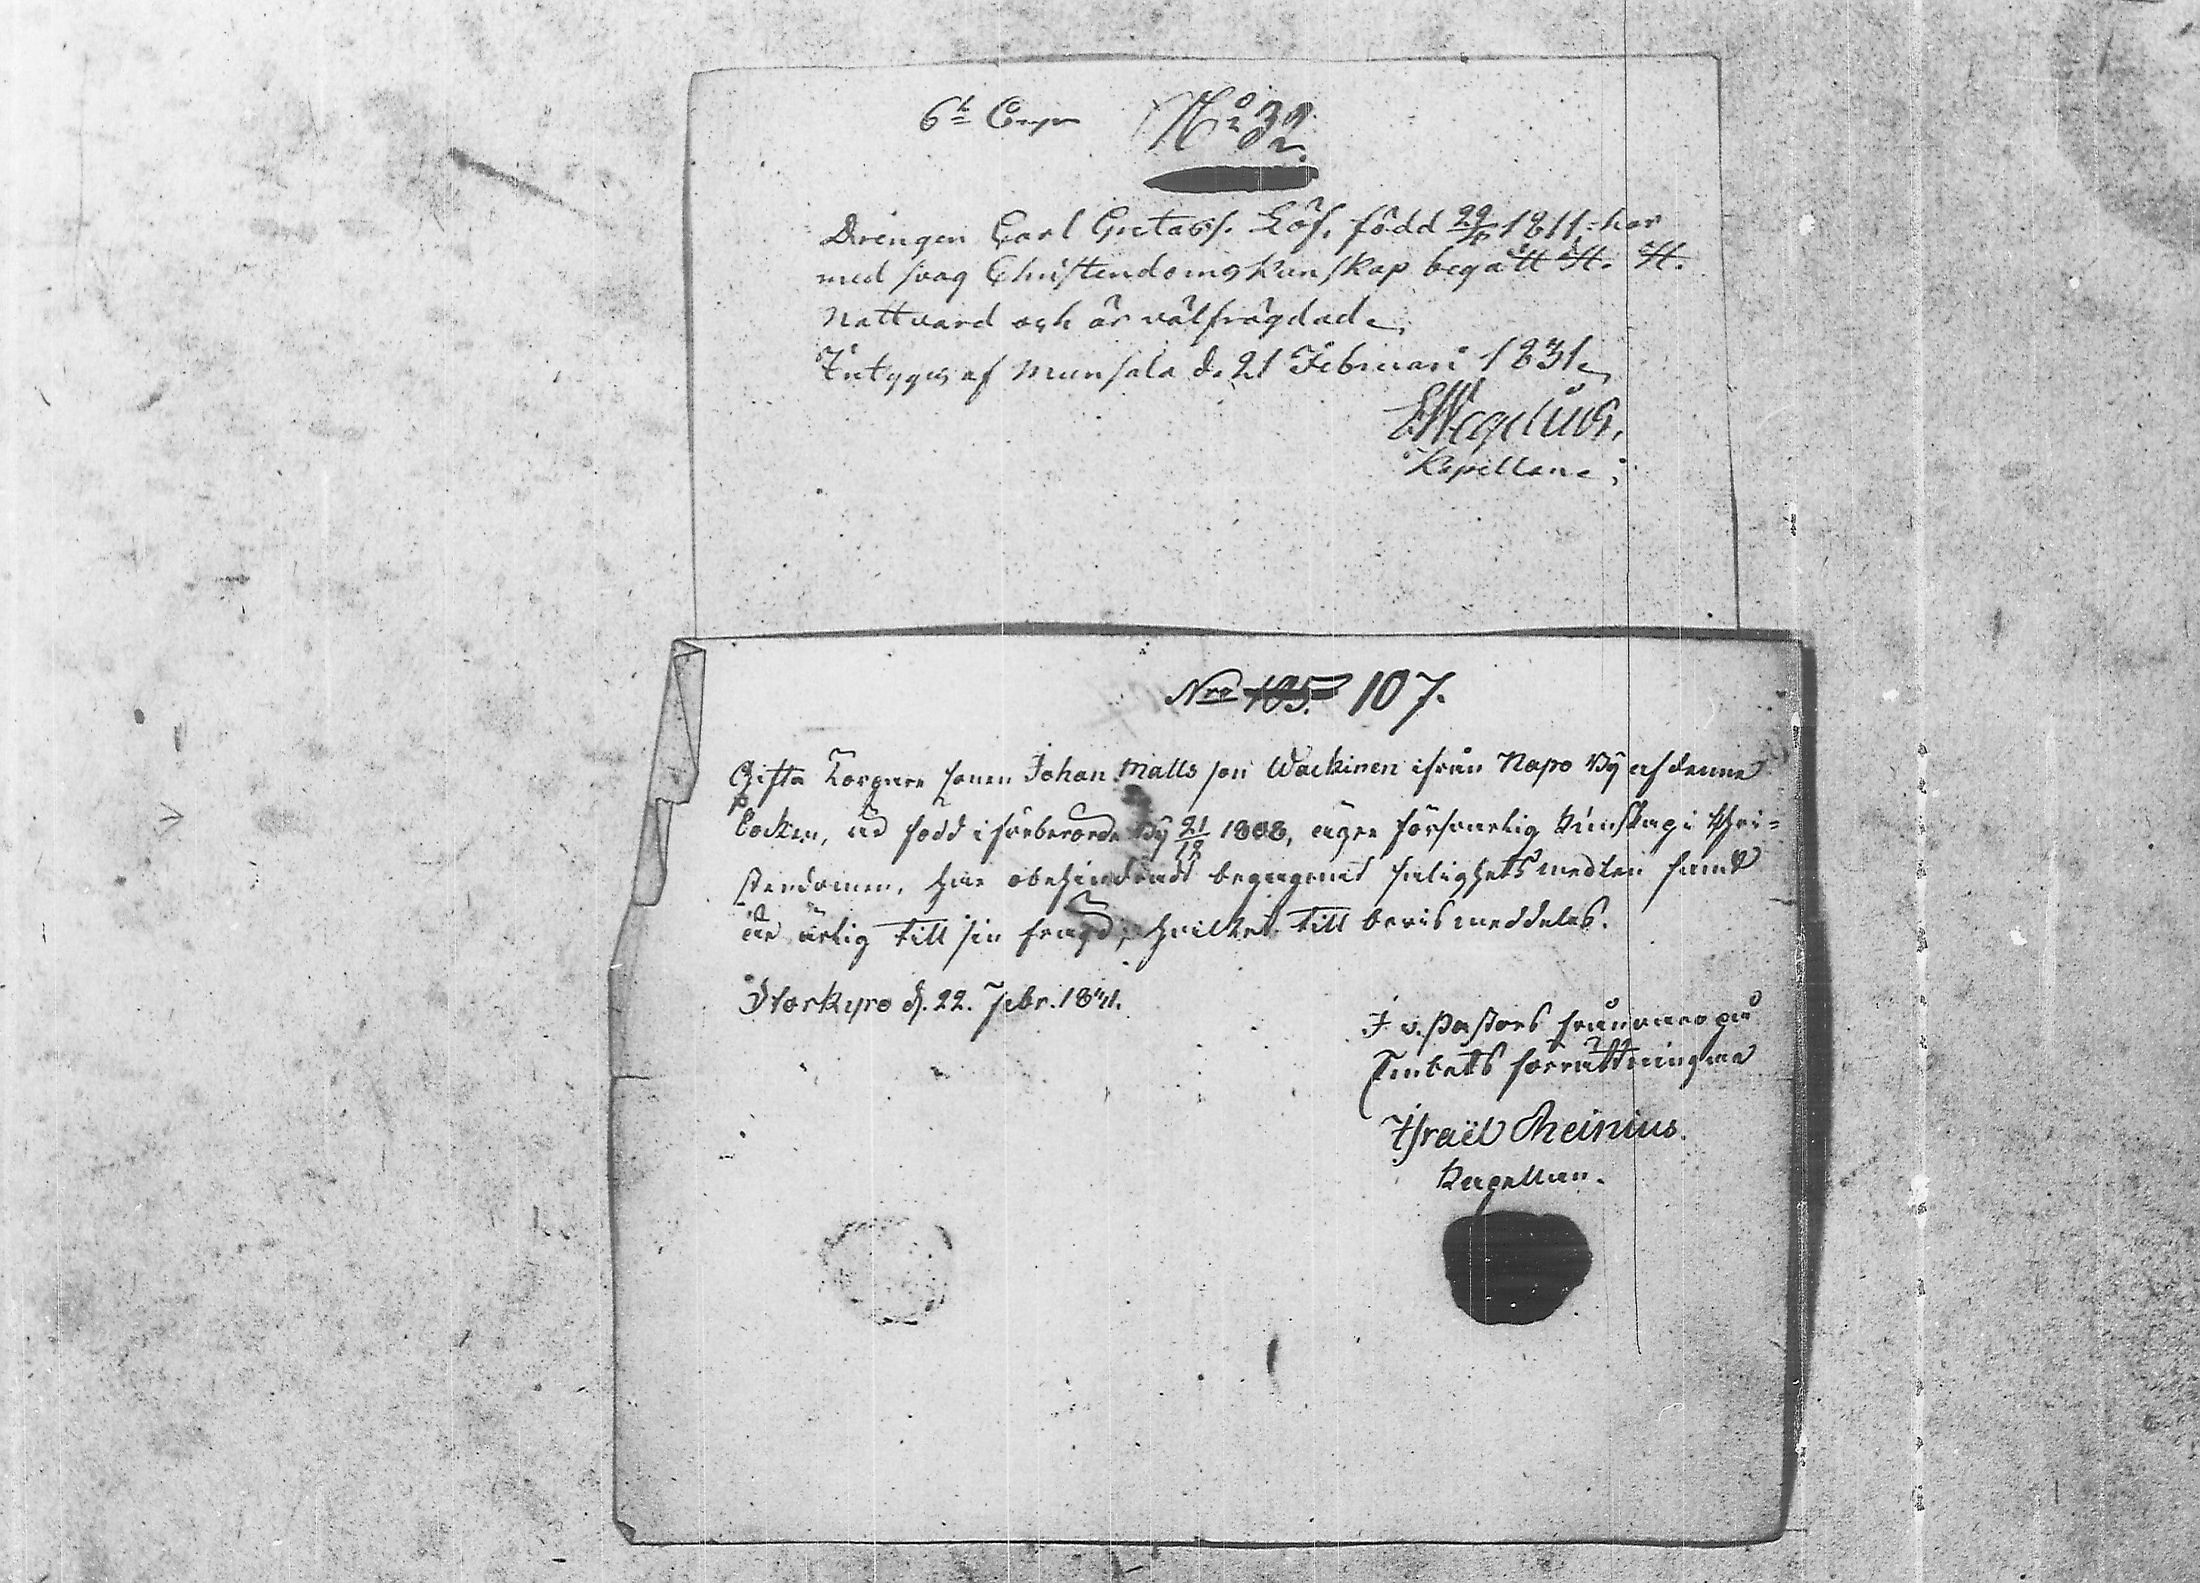 6:te Comp. No 32.
Drengen Carl Gustafss. Löf, född 29/6 1811, har
med svag Christendoms kunskap begått H. H.
Nattvard och är välfrägdad.
Intygas af Munsala d. 21 Februari 1831.
Kapellan.
Nro 105. 107.
Gifta Torpare sonen Johan Matts son Wackinen ifrån Napo By af denne
Socken, är född i förberörde By 21/12 1808, äger försvarlig kunskap i Chri=
stendomen, har obehindradt begagnat salighets medlen samt
är ärlig till sin frägd; hvilket till bevis meddelas.
Storkyro d. 22. Febr. 1831.
I v. Pastors frånvaro på
Embets förrättningar
Israël Reinius.
Kapellan.